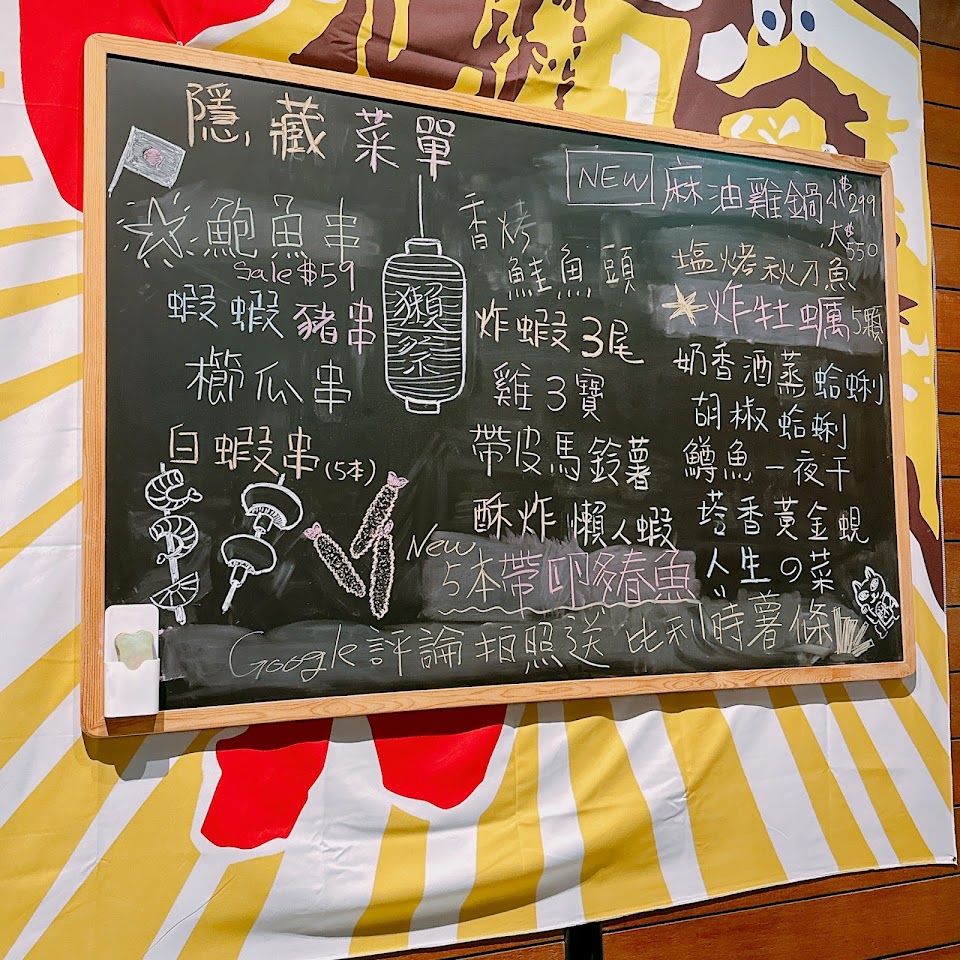 隱藏菜單
鮑魚串
Sale $59
蝦蝦豬串
櫛瓜串
白蝦串(5本)
獺祭
香烤
鮭魚頭
炸蝦3尾
雞3寶
帶皮馬鈴薯
酥炸懶人蝦
New
5本帶卵多春魚
NEW 麻油雞鍋 小$299
大$550
塩烤秋刀魚
炸牡蠣5顆
奶香酒蒸蛤蜊
胡椒蛤蜊
鱒魚一夜干
塔香黃金蜆
人生の菜
Google評論拍照送比利時薯條